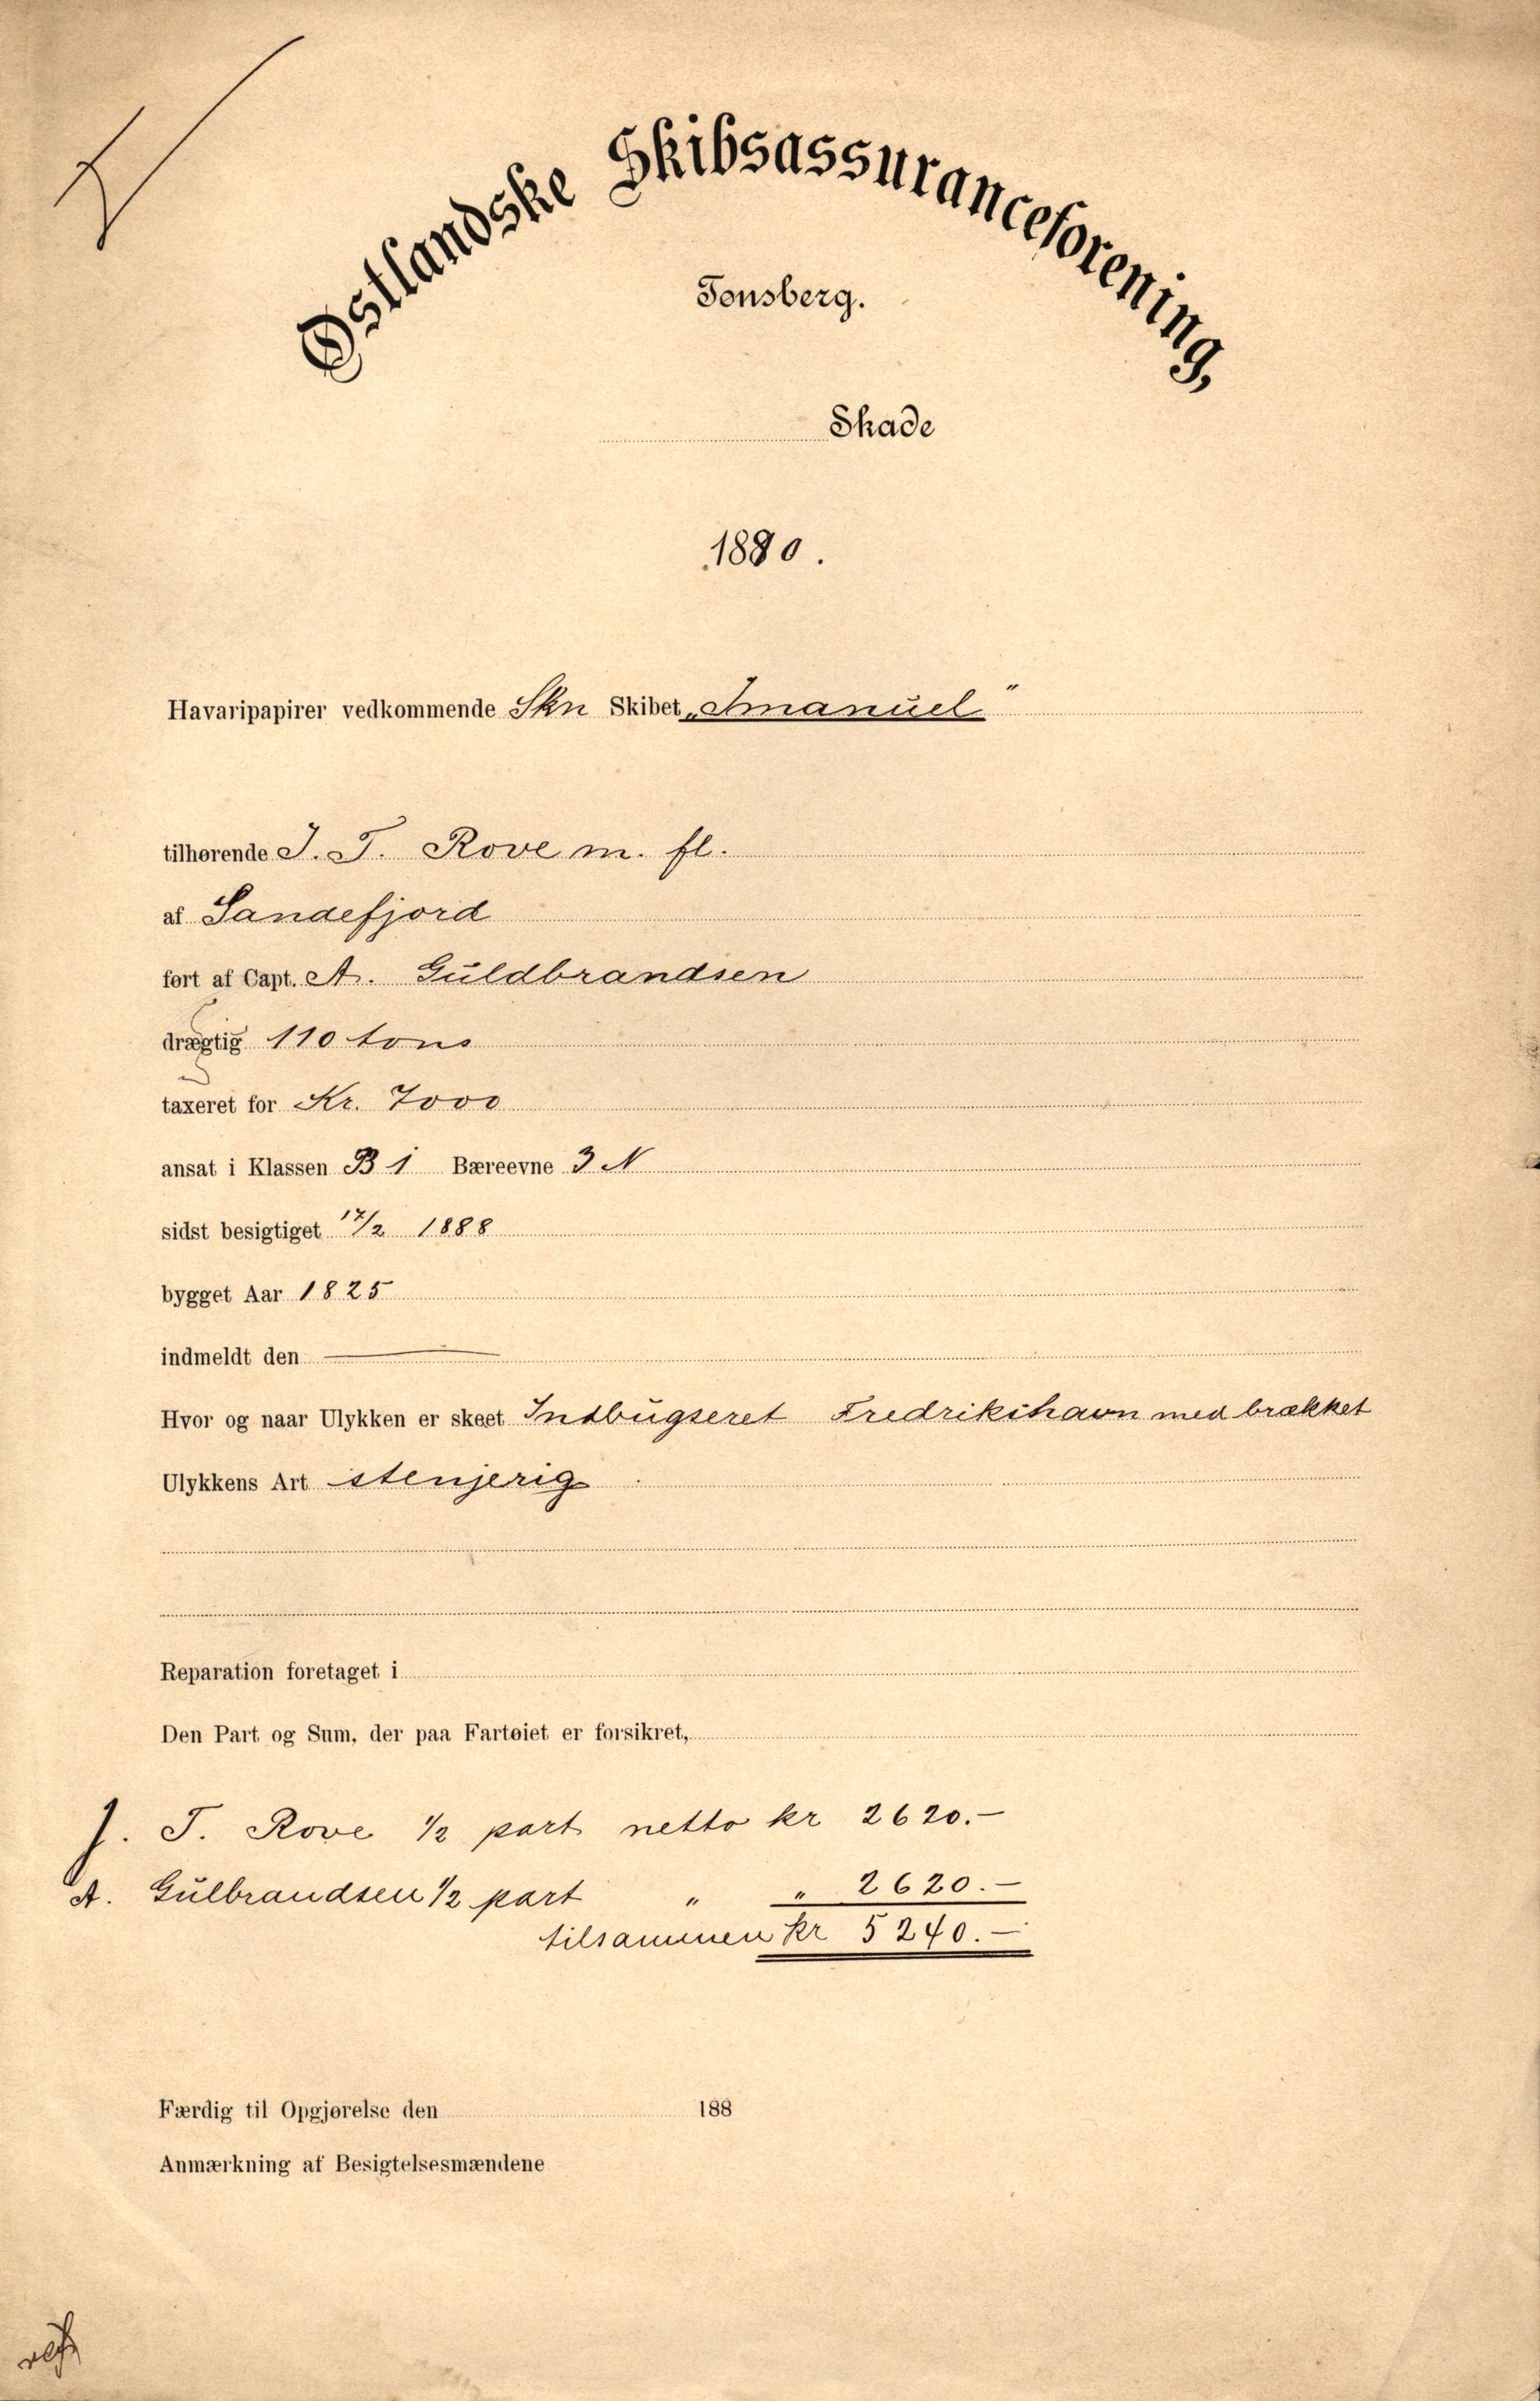 Østlandske Skibsassuranceforening,
Tønsberg.
Skade
1890.
Havaripapirer vedkommende Skn Skibet „Imanuel"
tilhørende J. T. Rove m. fl.
af Sandefjord
ført af Capt. A. Guldbrandsen
drægtig 110 tons
taxeret for Kr. 7000
ansat i Klassen B 1 Bæreevne 3 N
sidst besigtiget 17/2 1888
bygget Aar 1825
indmeldt den —
Hvor og naar Ulykken er skeet Indbugseret Fredrikshavn med brækket
Ulykkens Art stenjerig
Reparation foretaget i
Den Part og Sum, der paa Fartøiet er forsikret,
J. T. Rove 1/2 part netto kr 2620.–
A. Gulbrandsen 1/2 part " " 2620.–
tilsammen kr 5240.–
Færdig til Opgjørelse den 188
Anmærkning af Besigtelsesmændene